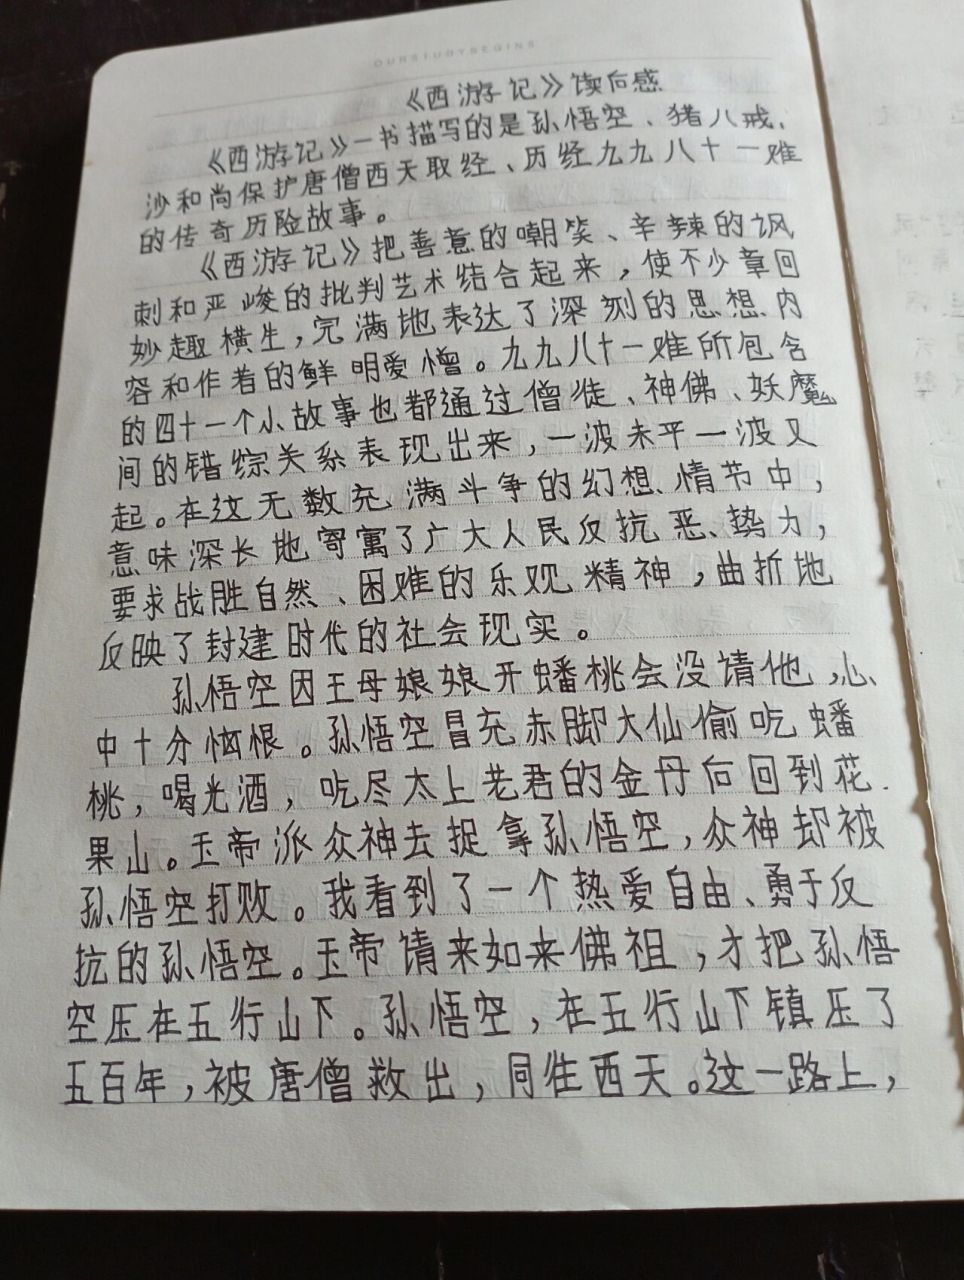 OURSTUDYBEGINS
《西游记》读后感
《西游记》一书描写的是孙悟空、猪八戒、
沙和尚保护唐僧西天取经、历经九九八十一难
的传奇历险故事。
《西游记》把善意的嘲笑、辛辣的讽
刺和严峻的批判艺术结合起来，使不少章回
妙趣横生，完满地表达了深刻的思想内
容和作者的鲜明爱憎。九九八十一难所包含
的四十一个小故事也都通过僧徒、神佛、妖魔
间的错综关系表现出来，一波未平一波又
起。在这无数充满斗争的幻想情节中，
意味深长地寄寓了广大人民反抗恶势力，
要求战胜自然、困难的乐观精神，曲折地
反映了封建时代的社会现实。
孙悟空因王母娘娘开蟠桃会没请他，心
中十分恼恨。孙悟空冒充赤脚大仙偷吃蟠
桃，喝光酒，吃尽太上老君的金丹后回到花
果山。玉帝派众神去捉拿孙悟空，众神却被
孙悟空打败。我看到了一个热爱自由、勇于反
抗的孙悟空。玉帝请来如来佛祖，才把孙悟
空压在五行山下。孙悟空，在五行山下镇压了
五百年，被唐僧救出，同往西天。这一路上，